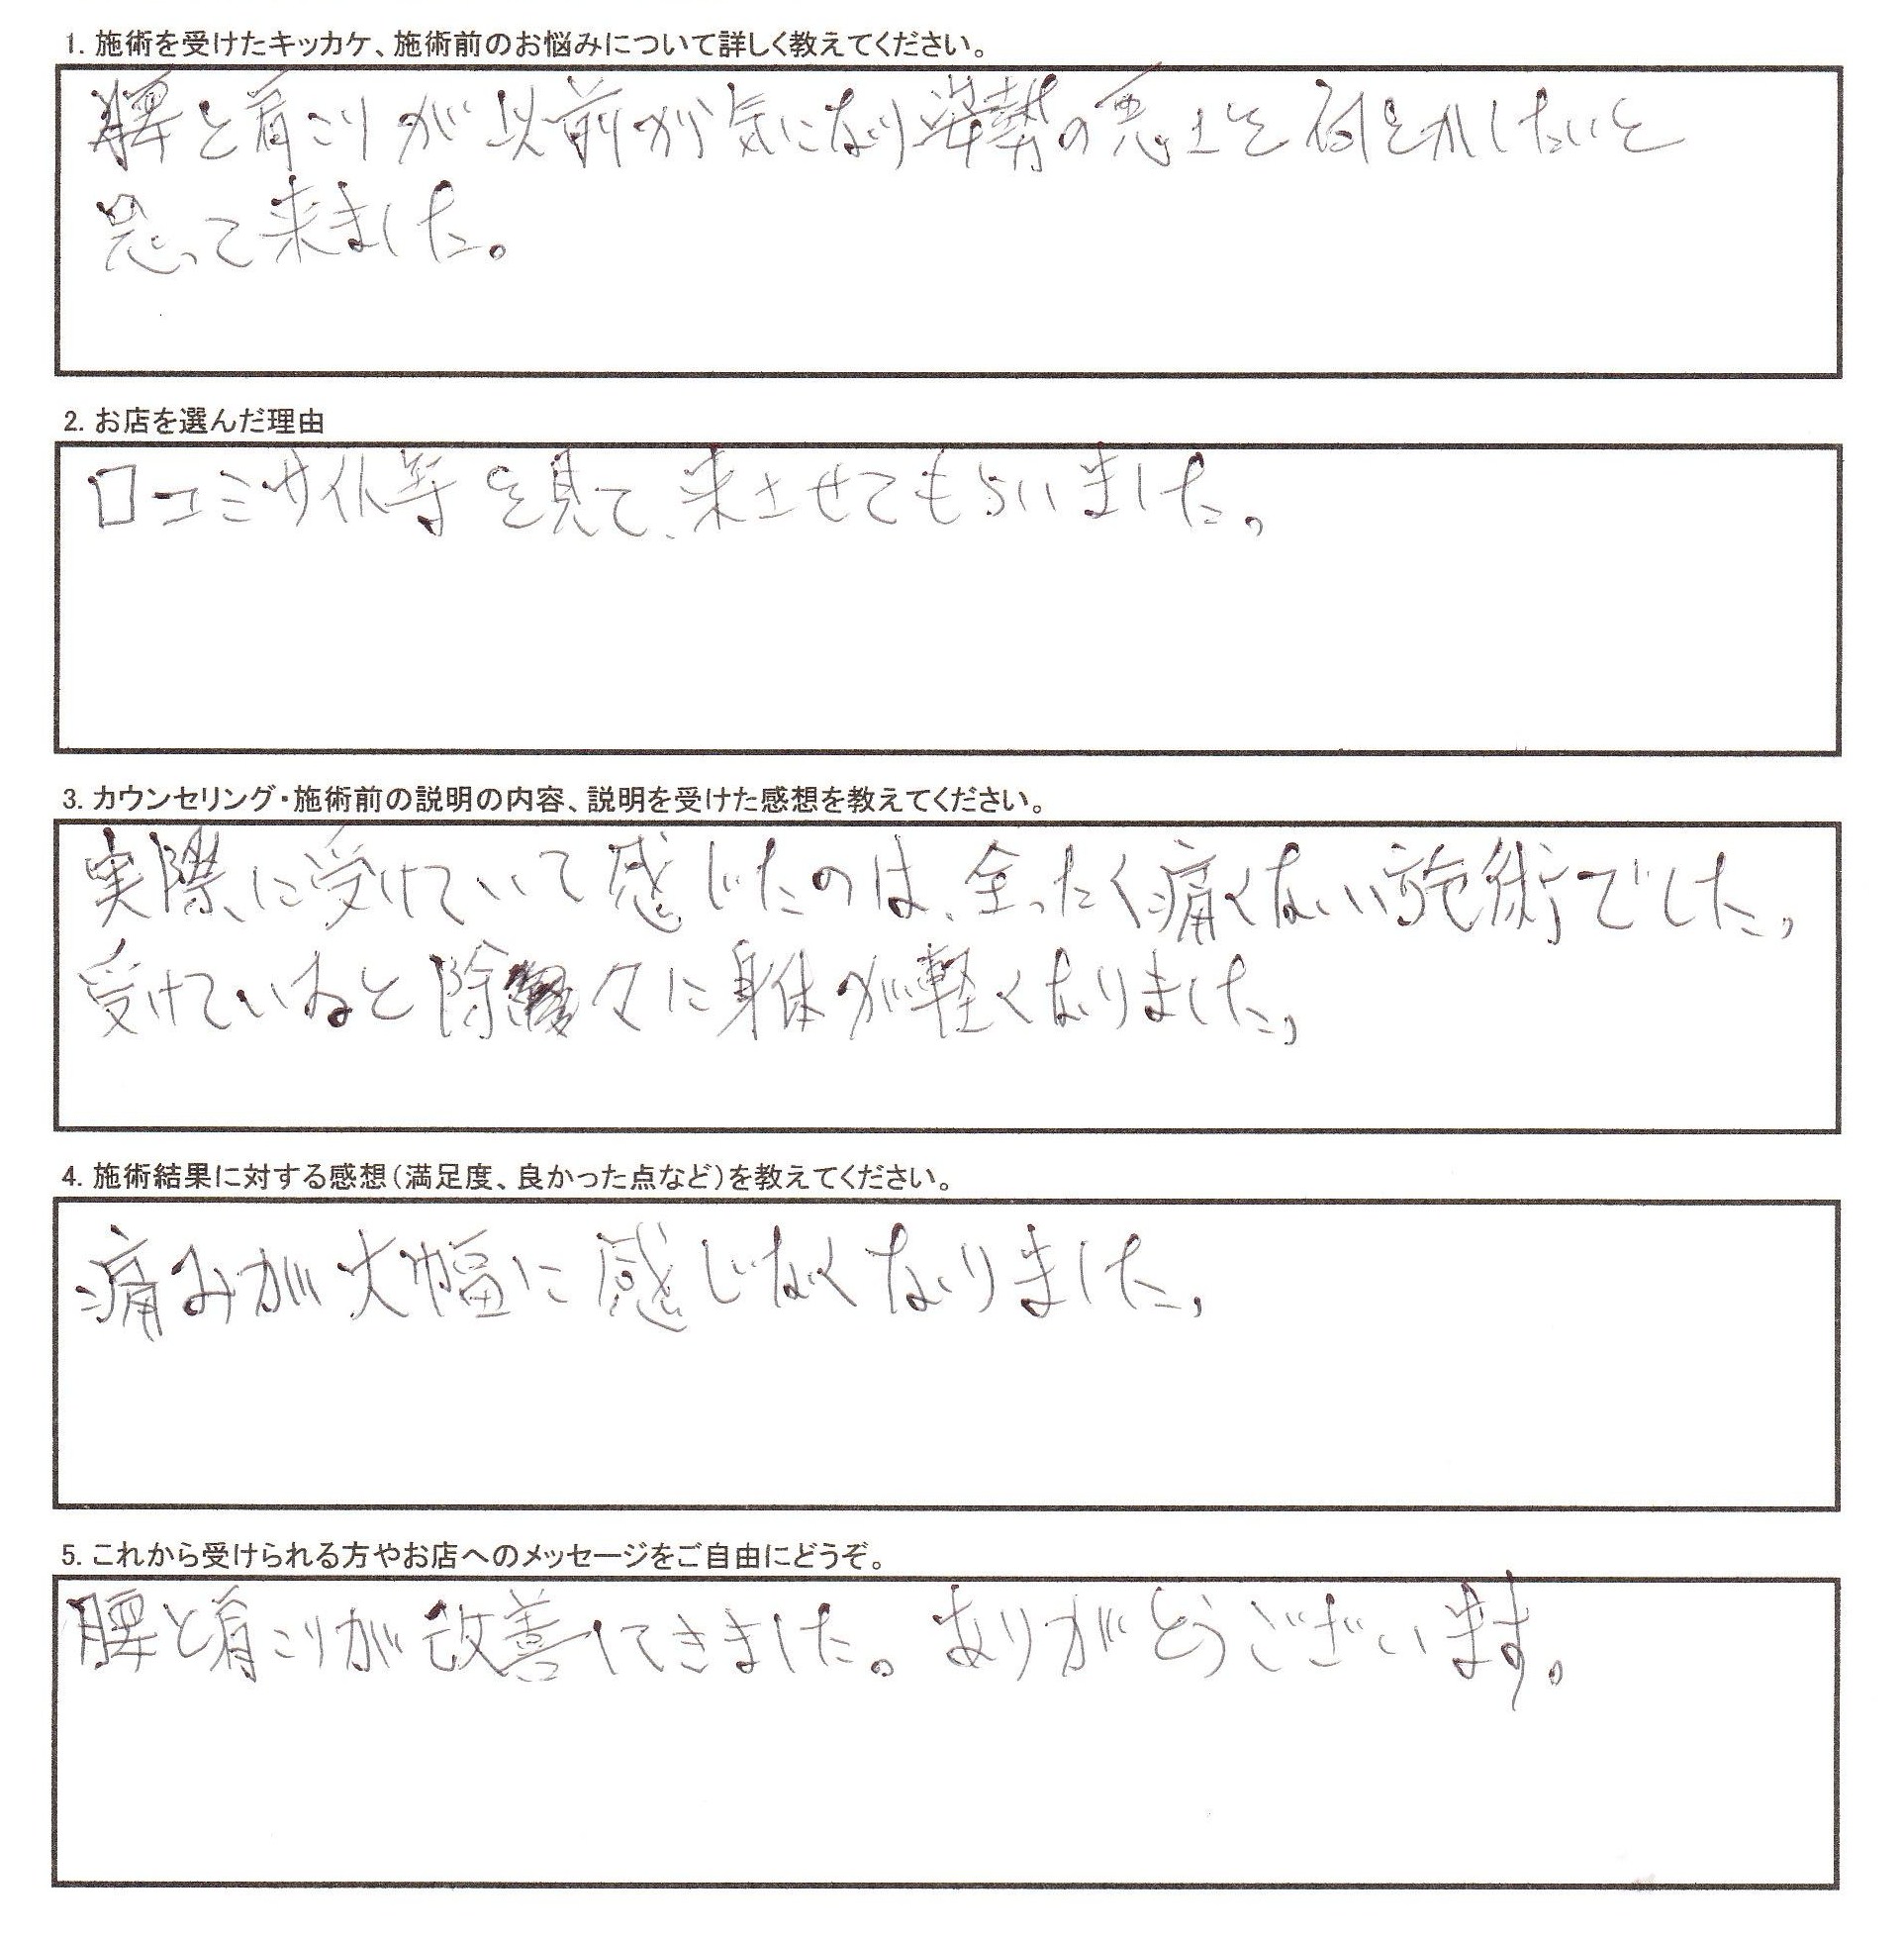 1. 施術を受けたキッカケ、施術前のお悩みについて詳しく教えてください。
腰と肩こりが以前から気になり姿勢の悪さを何とかしたいと
思って来ました。
2. お店を選んだ理由
口コミサイト等を見て、来させてもらいました。
3. カウンセリング・施術前の説明の内容、説明を受けた感想を教えてください。
実際に受けていて感じたのは、全ったく痛くない施術でした。
受けていると除々に身体が軽くなりました。
4. 施術結果に対する感想(満足度、良かった点など)を教えてください。
痛みが大幅に感じなくなりました。
5. これから受けられる方やお店へのメッセージをご自由にどうぞ。
腰と肩こりが改善してきました。ありがとうございます。